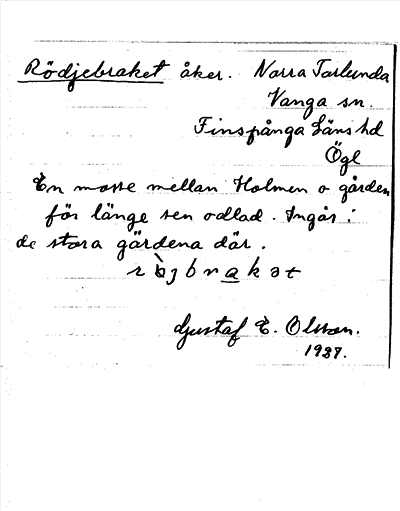 Rödjebraket åker. Norra Torlunda
Vånga sn.
Finspånga Läns hd
Ögl
En mosse mellan Holmen o gården
för länge sen odlad. Ingår i
de stora gärdena där.
Gustaf E. Olsson.
1937.